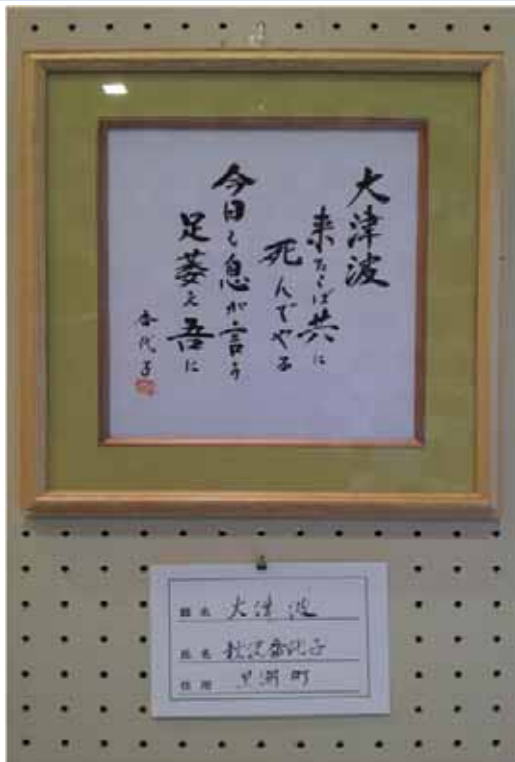 大津波
来たらば共に
死んでやる
今日も息が言う
足萎え吾に
香代子
題名 大津波
氏名 秋沢香代子
住所 黒潮町